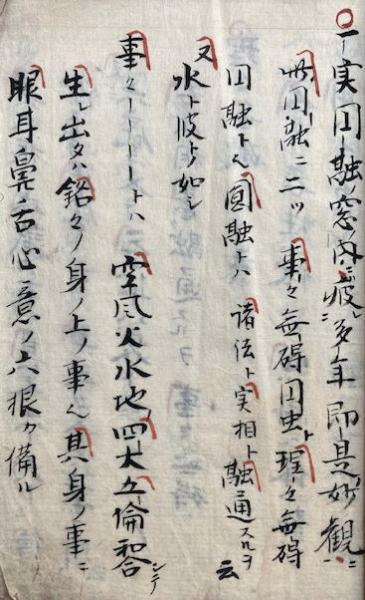 一実円融ノ窓ノ内ニハ疲レ多年即是妙観ニ
此円融ニ二ツ事々無碍円融ト理々無碍
円融ト也圓融トハ諸法ト実相ト融通スルヲ云
又水ト波トノ如シ
事々トハ空風火水地ノ四大五倫和合シテ
生レ出タハ銘々ノ身ノ上ノ事也其身ノ事ニ
眼耳鼻舌心意ノ六根カ備ル